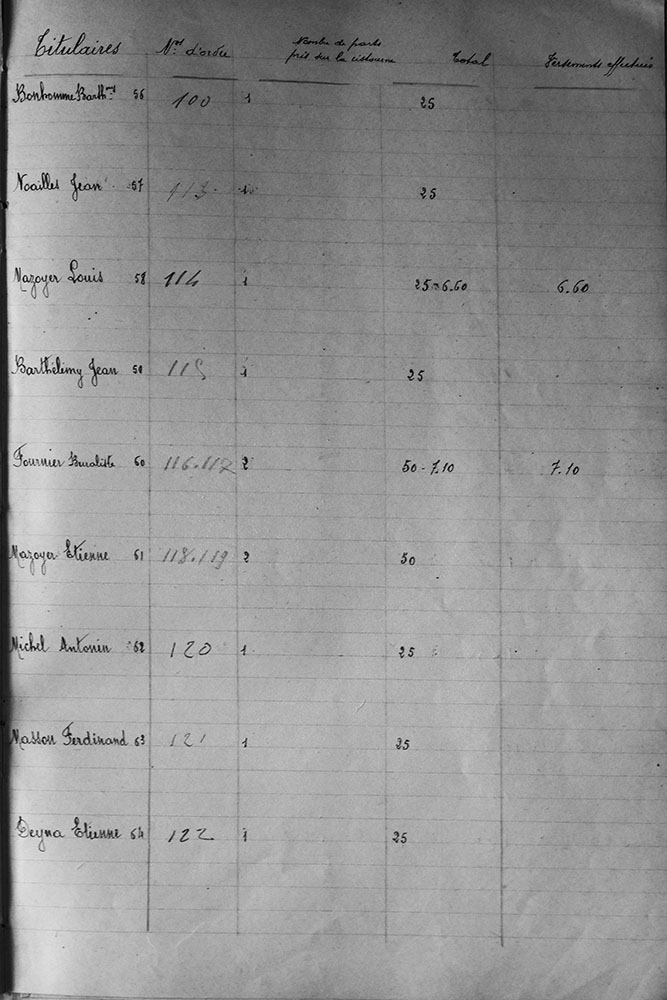 Titulaires Nos d'ordre Nombre de parts Total Versements effectués
pris sur la citerne
Bonhomme Barthmi 56 100 1 25
Noailles Jean 57 113 1 25
Mazoyer Louis 58 114 1 25-6.60 6.60
Barthélémy Jean 59 115 1 25
Fournier Buraliste 60 116.117 2 50-7.10 7.10
Mazoyer Etienne 61 118.119 2 50
Michel Antonin 62 120 1 25
Masson Ferdinand 63 121 1 25
Deyna Etienne 64 122 1 25